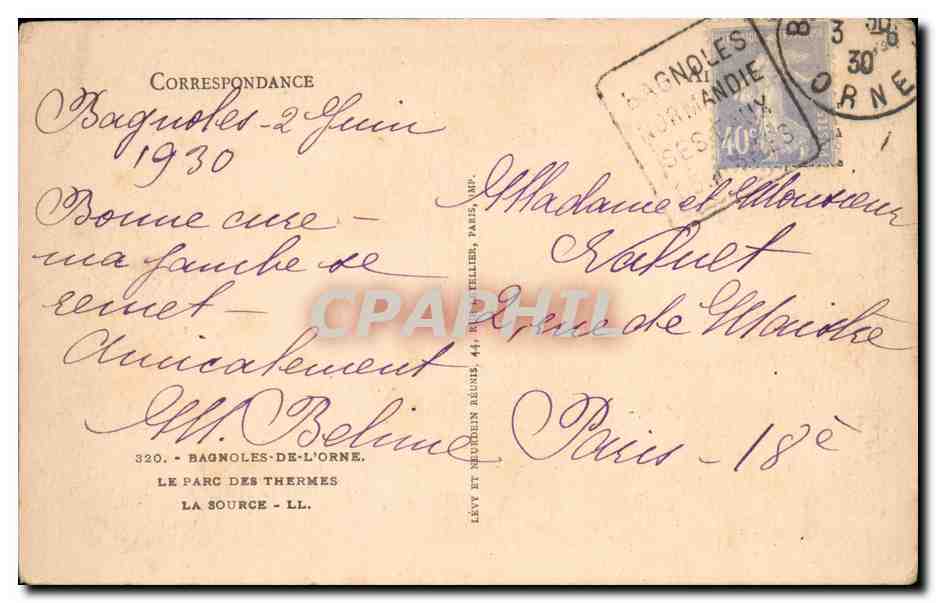 CORRESPONDANCE
Bagnoles - 2 Juin
1930
Bonne cure -
ma jambe se
remet -
Amicalement
M. Beline
320. - BAGNOLES-DE-L'ORNE.
LE PARC DES THERMES
LA SOURCE - LL.
LÉVY ET NEURDEIN RÉUNIS, 44, RUE LETELLIER, PARIS, IMP.
BAGNOLES
NORMANDIE
SES
40c
B
3 6
30
ORNE
Madame et Monsieur
2, rue de Maistre
Paris - 18è
CPAPHIL